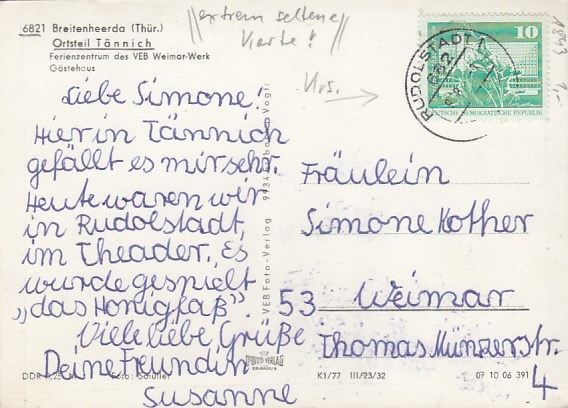 6821 Breitenheerda (Thür.)
Ortsteil Tännich
Ferienzentrum des VEB Weimar-Werk
Gästehaus
"extrem seltene
Karte!"
Liebe Simone!
Hier in Tännich
gefällt es mir sehr.
Heute waren wir
in Rudolstadt,
im Theader. Es
wurde gespielt
„das Honigfaß".
Viele liebe Grüße
Deine Freundin
Susanne
DDR
Foto: Schüller
VEB Foto-Verlag
RUDOLSTADT 1
10
DEUTSCHE DEMOKRATISCHE REPUBLIK
Fräulein
Simone Kother
53 Weimar
Thomas Münzerstr.
4
K1/77 III/23/32
07 10 06 391